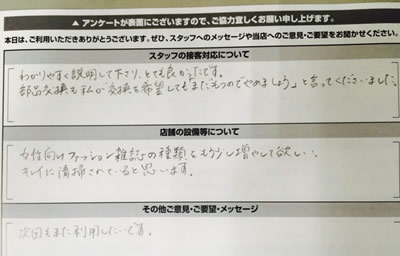 ▲ アンケートが表面にございますので、ご協力宜しくお願い申し上げます。
本日は、ご利用いただきありがとうございます。ぜひ、スタッフへのメッセージや当店へのご意見・ご要望をお聞かせください。
スタッフの接客対応について
わかりやすく説明して下さり、とても良かったです。
部品交換も私が交換を希望しても「まだもつのでやめましょう」と言ってくださいました。
店舗の設備等について
女性向けファッション雑誌の種類をもう少し増やして欲しい。
キレイに清掃されていると思います。
その他ご意見・ご要望・メッセージ
次回もまた利用したいです。